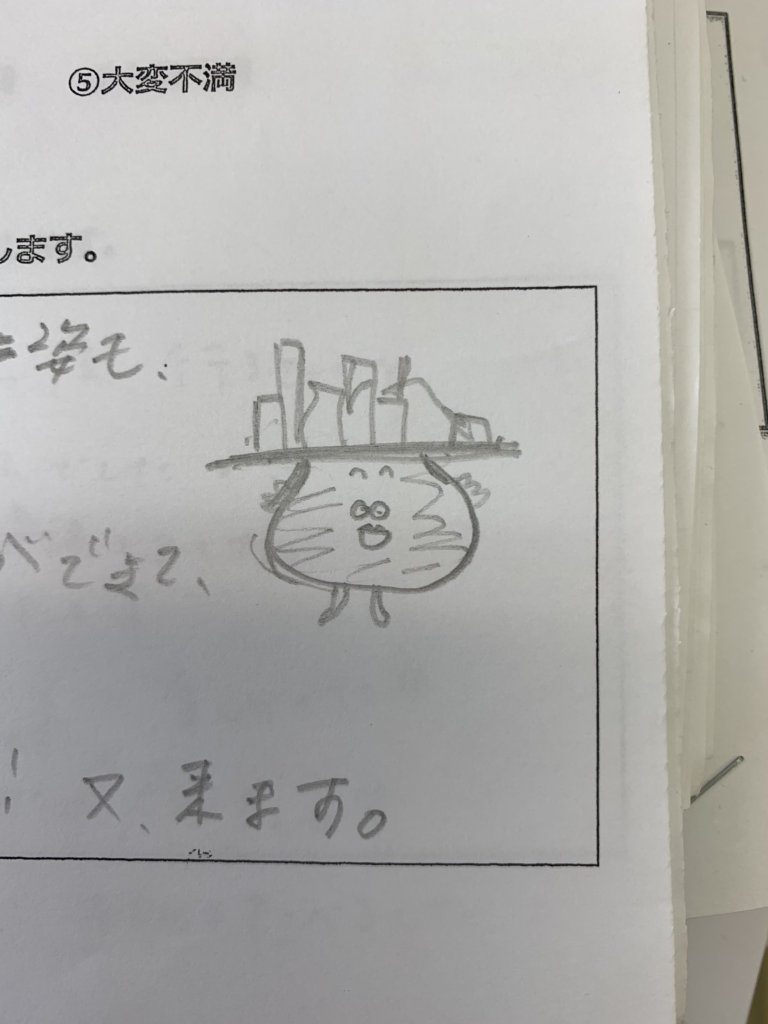 ⑤大変不満
します。
姿も、
できて、
! 又、来ます。